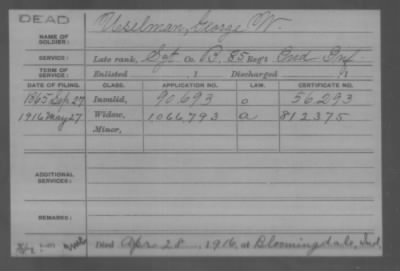 DEAD
Usselman, George W.
NAME OF SOLDIER:
SERVICE: Late rank, Sgt Co. B, 85 Reg't Ind Inf.
TERM OF SERVICE: Enlisted , 1 Discharged , 1
DATE OF FILING. CLASS. APPLICATION NO. LAW. CERTIFICATE NO.
1865 Sep 27 Invalid, 90.693 0 56.293
1916 May 27 Widow, 1066.793 a 812375
Minor,
ADDITIONAL SERVICES:
REMARKS:
Died Apr 28, 1916, at Bloomingdale, Ind.